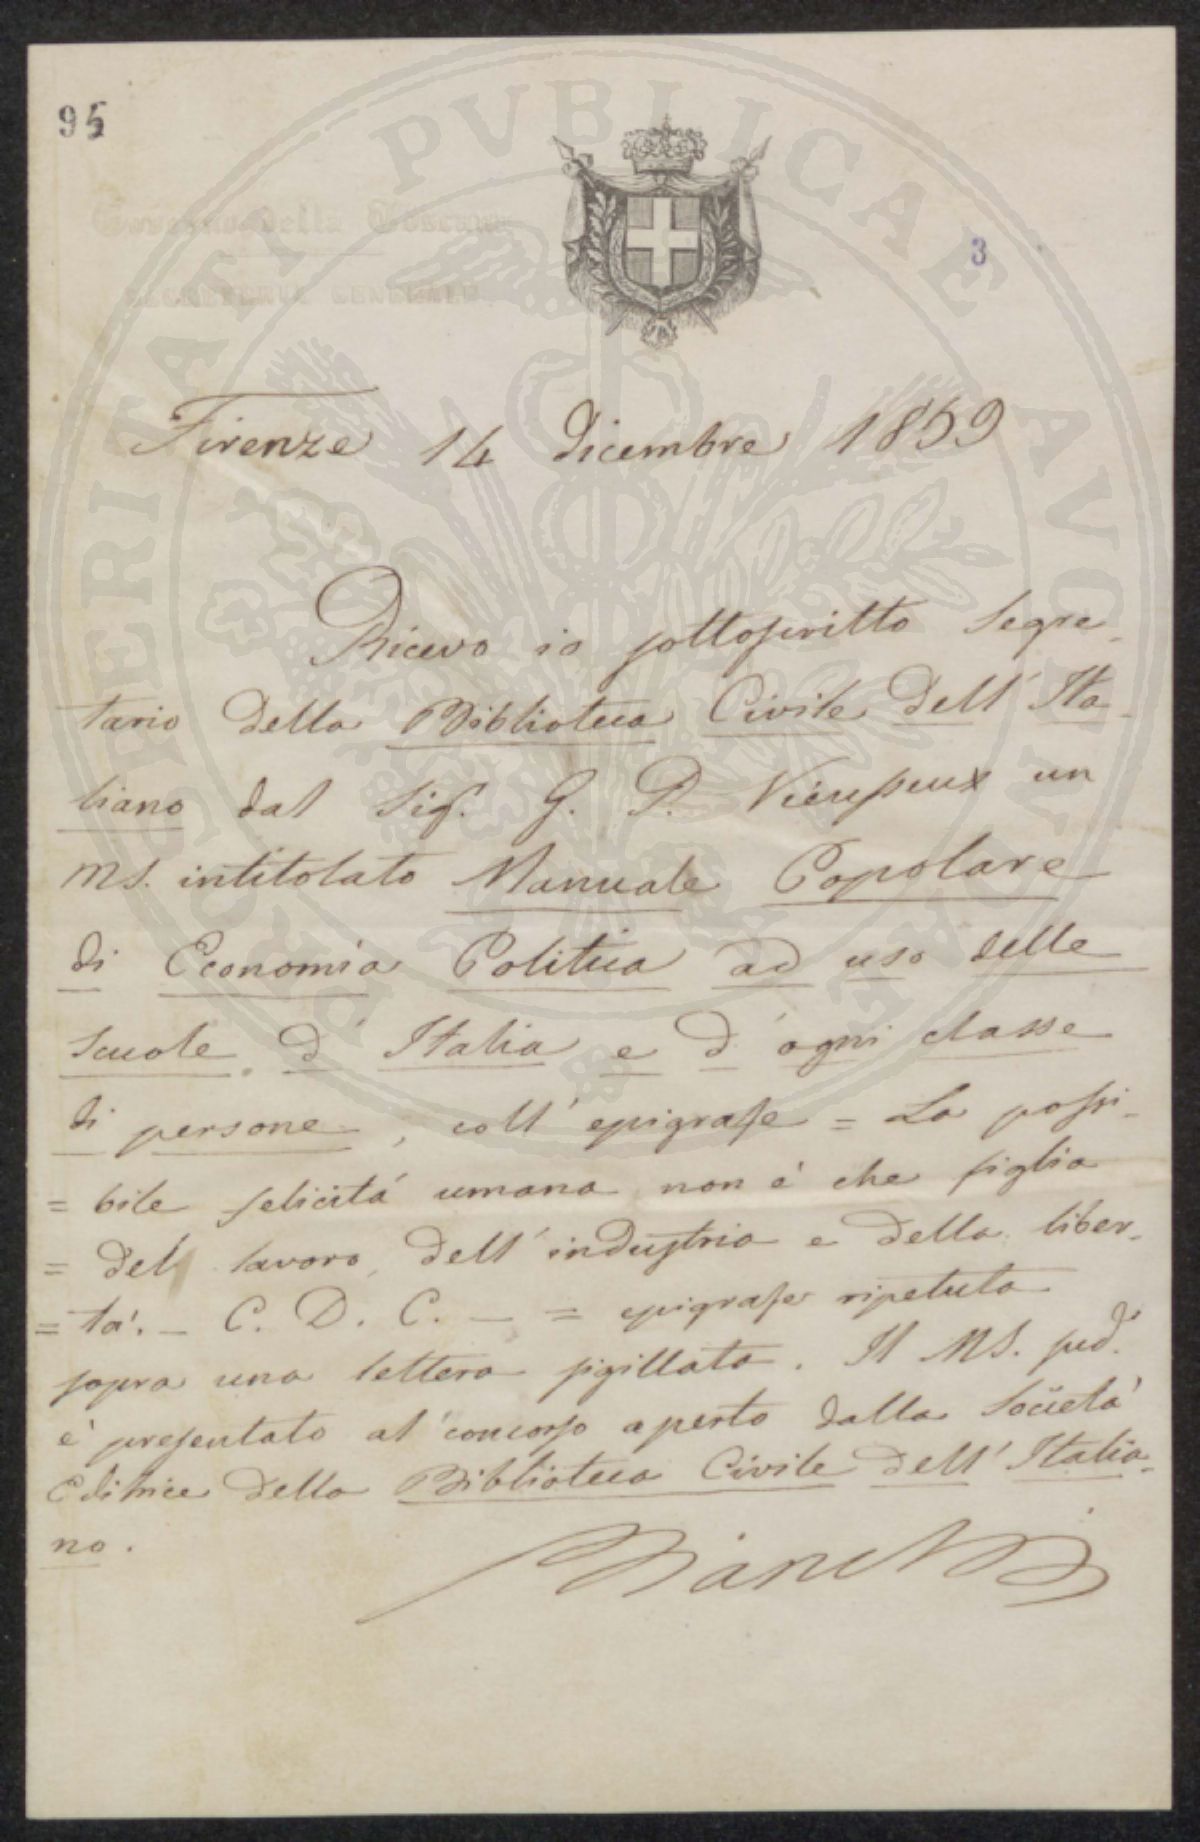 95
PROSPERITATI PVBLICAE AVGENDAE
Governo della Toscana
SEGRETERIA GENERALE
3
Firenze 14 Dicembre 1859
Ricevo io sottoscritto Segre-
tario della Biblioteca Civile Dell' Ita-
liano dal Sig. G. P. Vieusseux un
MS. intitolato Manuale Popolare
di Economia Politica ad uso delle
Scuole d' Italia e d' ogni classe
di persone, coll' epigrafe = La possi-
= bile felicità umana non è che figlia
= del lavoro, dell' industria e della liber-
= tà. - C. D. C. - = epigrafe ripetuta
sopra una lettera sigillata. Il MS. sud.º
è presentato al concorso aperto dalla Società
Editrice della Biblioteca Civile Dell' Italia-
no.
Bianchi